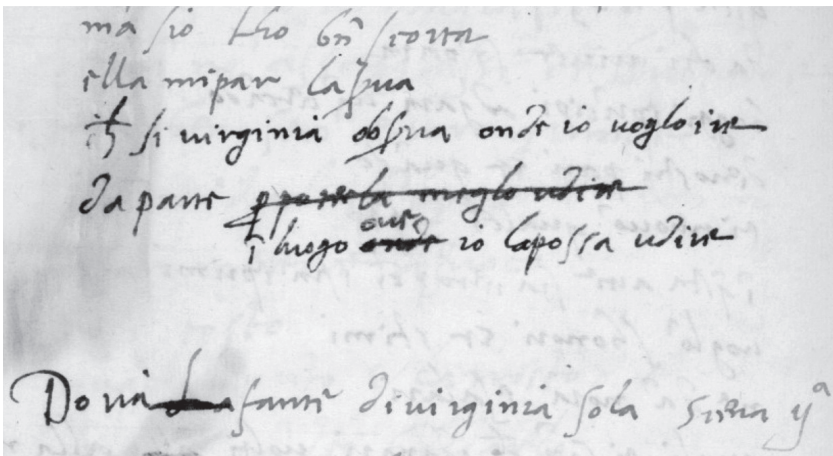 ma sio tho bñ scorta
ella mipar la sua
si virginia obsua onde io uogloire
da parte p poterla meglo udire
ĩ luogo onde oue io lapossa udire
Dona da fante di virginia sola Scena ijª